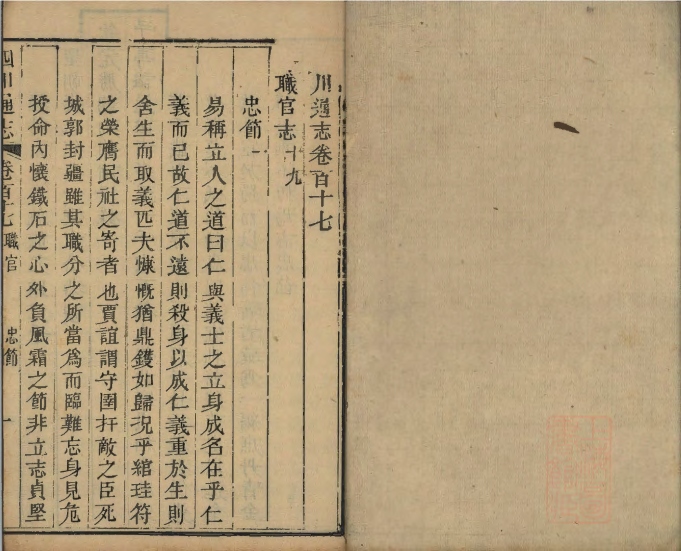 川通志卷百十七
職官志十九
忠節一
易稱立人之道曰仁與義士之立身成名在乎仁
義而已故仁道不遠則殺身以成仁義重於生則
舍生而取義匹夫慷慨猶鼎鑊如歸況乎綰珪符
之榮膺民社之寄者也賈誼謂守圉扞敵之臣死
城郭封疆雖其職分之所當爲而臨難忘身見危
授命內懷鐵石之心外負風霜之節非立志貞堅
四川通志 卷百十七 職官 忠節 一